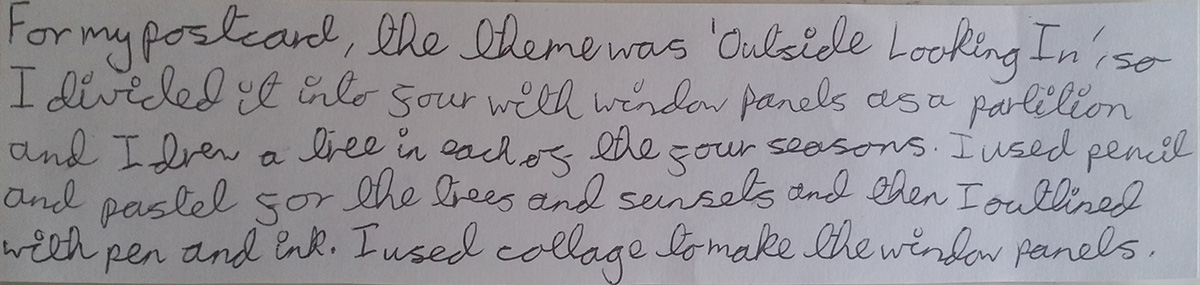 For my postcard, the theme was 'Outside Looking In', so
I divided it into four with window panels as a partition
and I drew a tree in each of the four seasons. I used pencil
and pastel for the trees and sunsets and then I outlined
with pen and ink. I used collage to make the window panels.